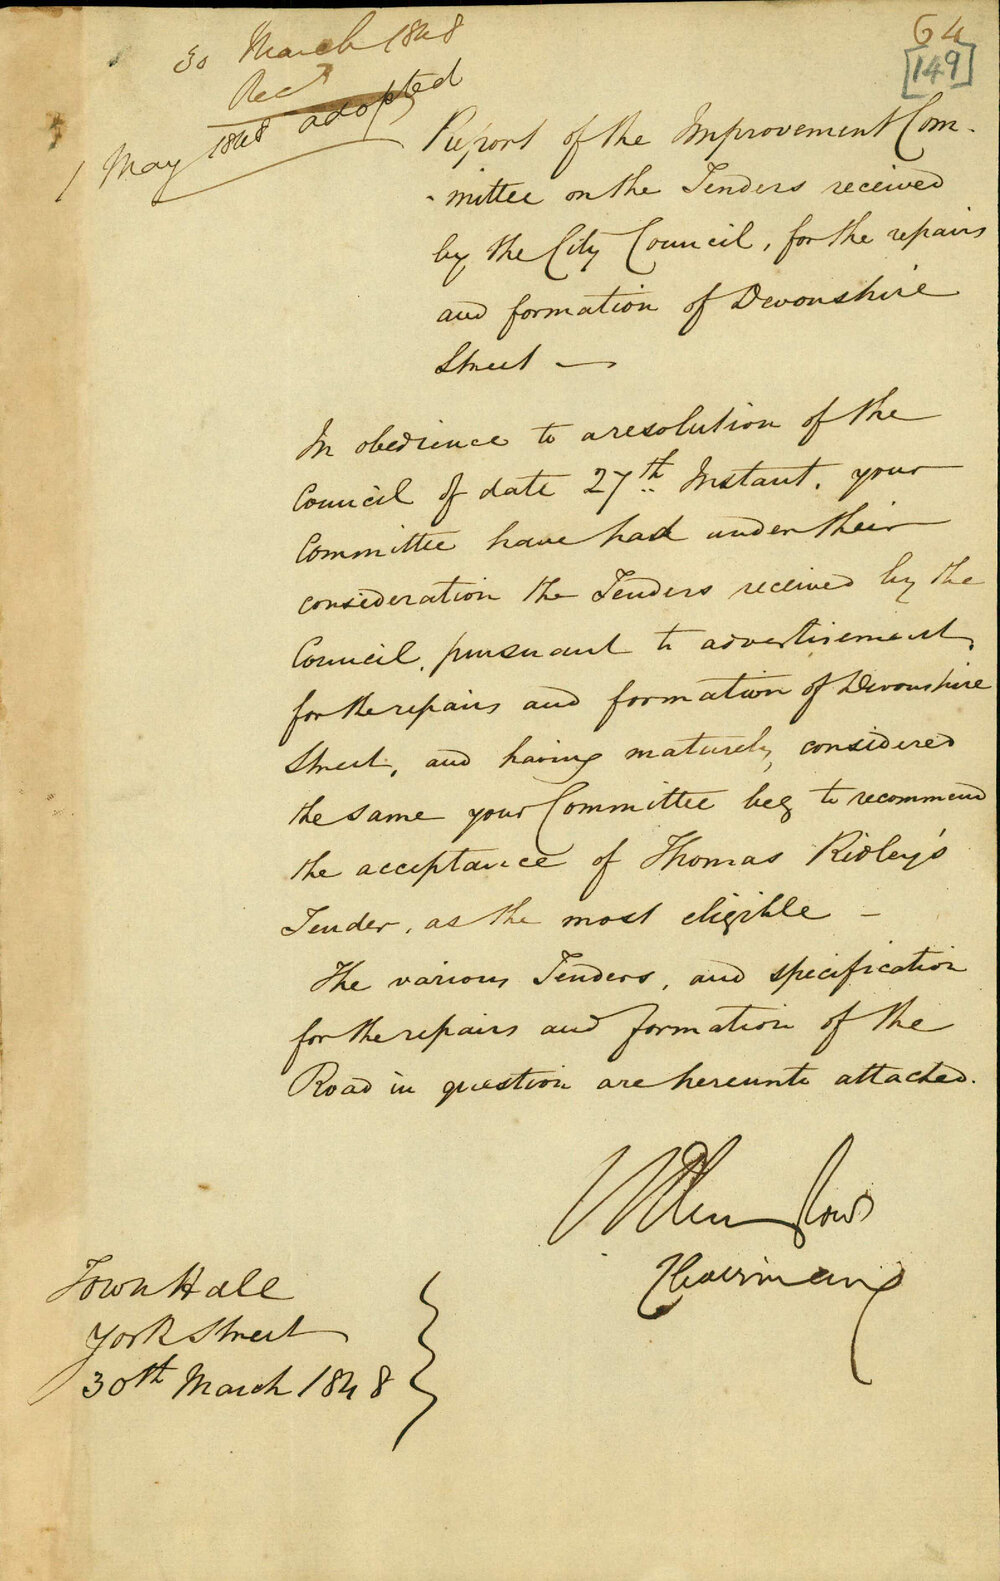 30 March 1848
Recd
1 May 1848 adopted
64
[149]
Report of the Improvement Com-
-mittee on the Tenders received
by the City Council, for the repairs
and formation of Devonshire
Street —
In obedience to a resolution of the
Council of date 27th Instant. your
Committee have had under their
consideration the Tenders received by the
Council, pursuant to advertisement,
for the repairs and formation of Devonshire
Street, and having maturely considered
the same your Committee beg to recommend
the acceptance of Thomas Ridley's
Tender, as the most eligible —
The various Tenders, and specification
for the repairs and formation of the
Road in question are hereunto attached.
Chairman
Town Hall
York Street
30th March 1848